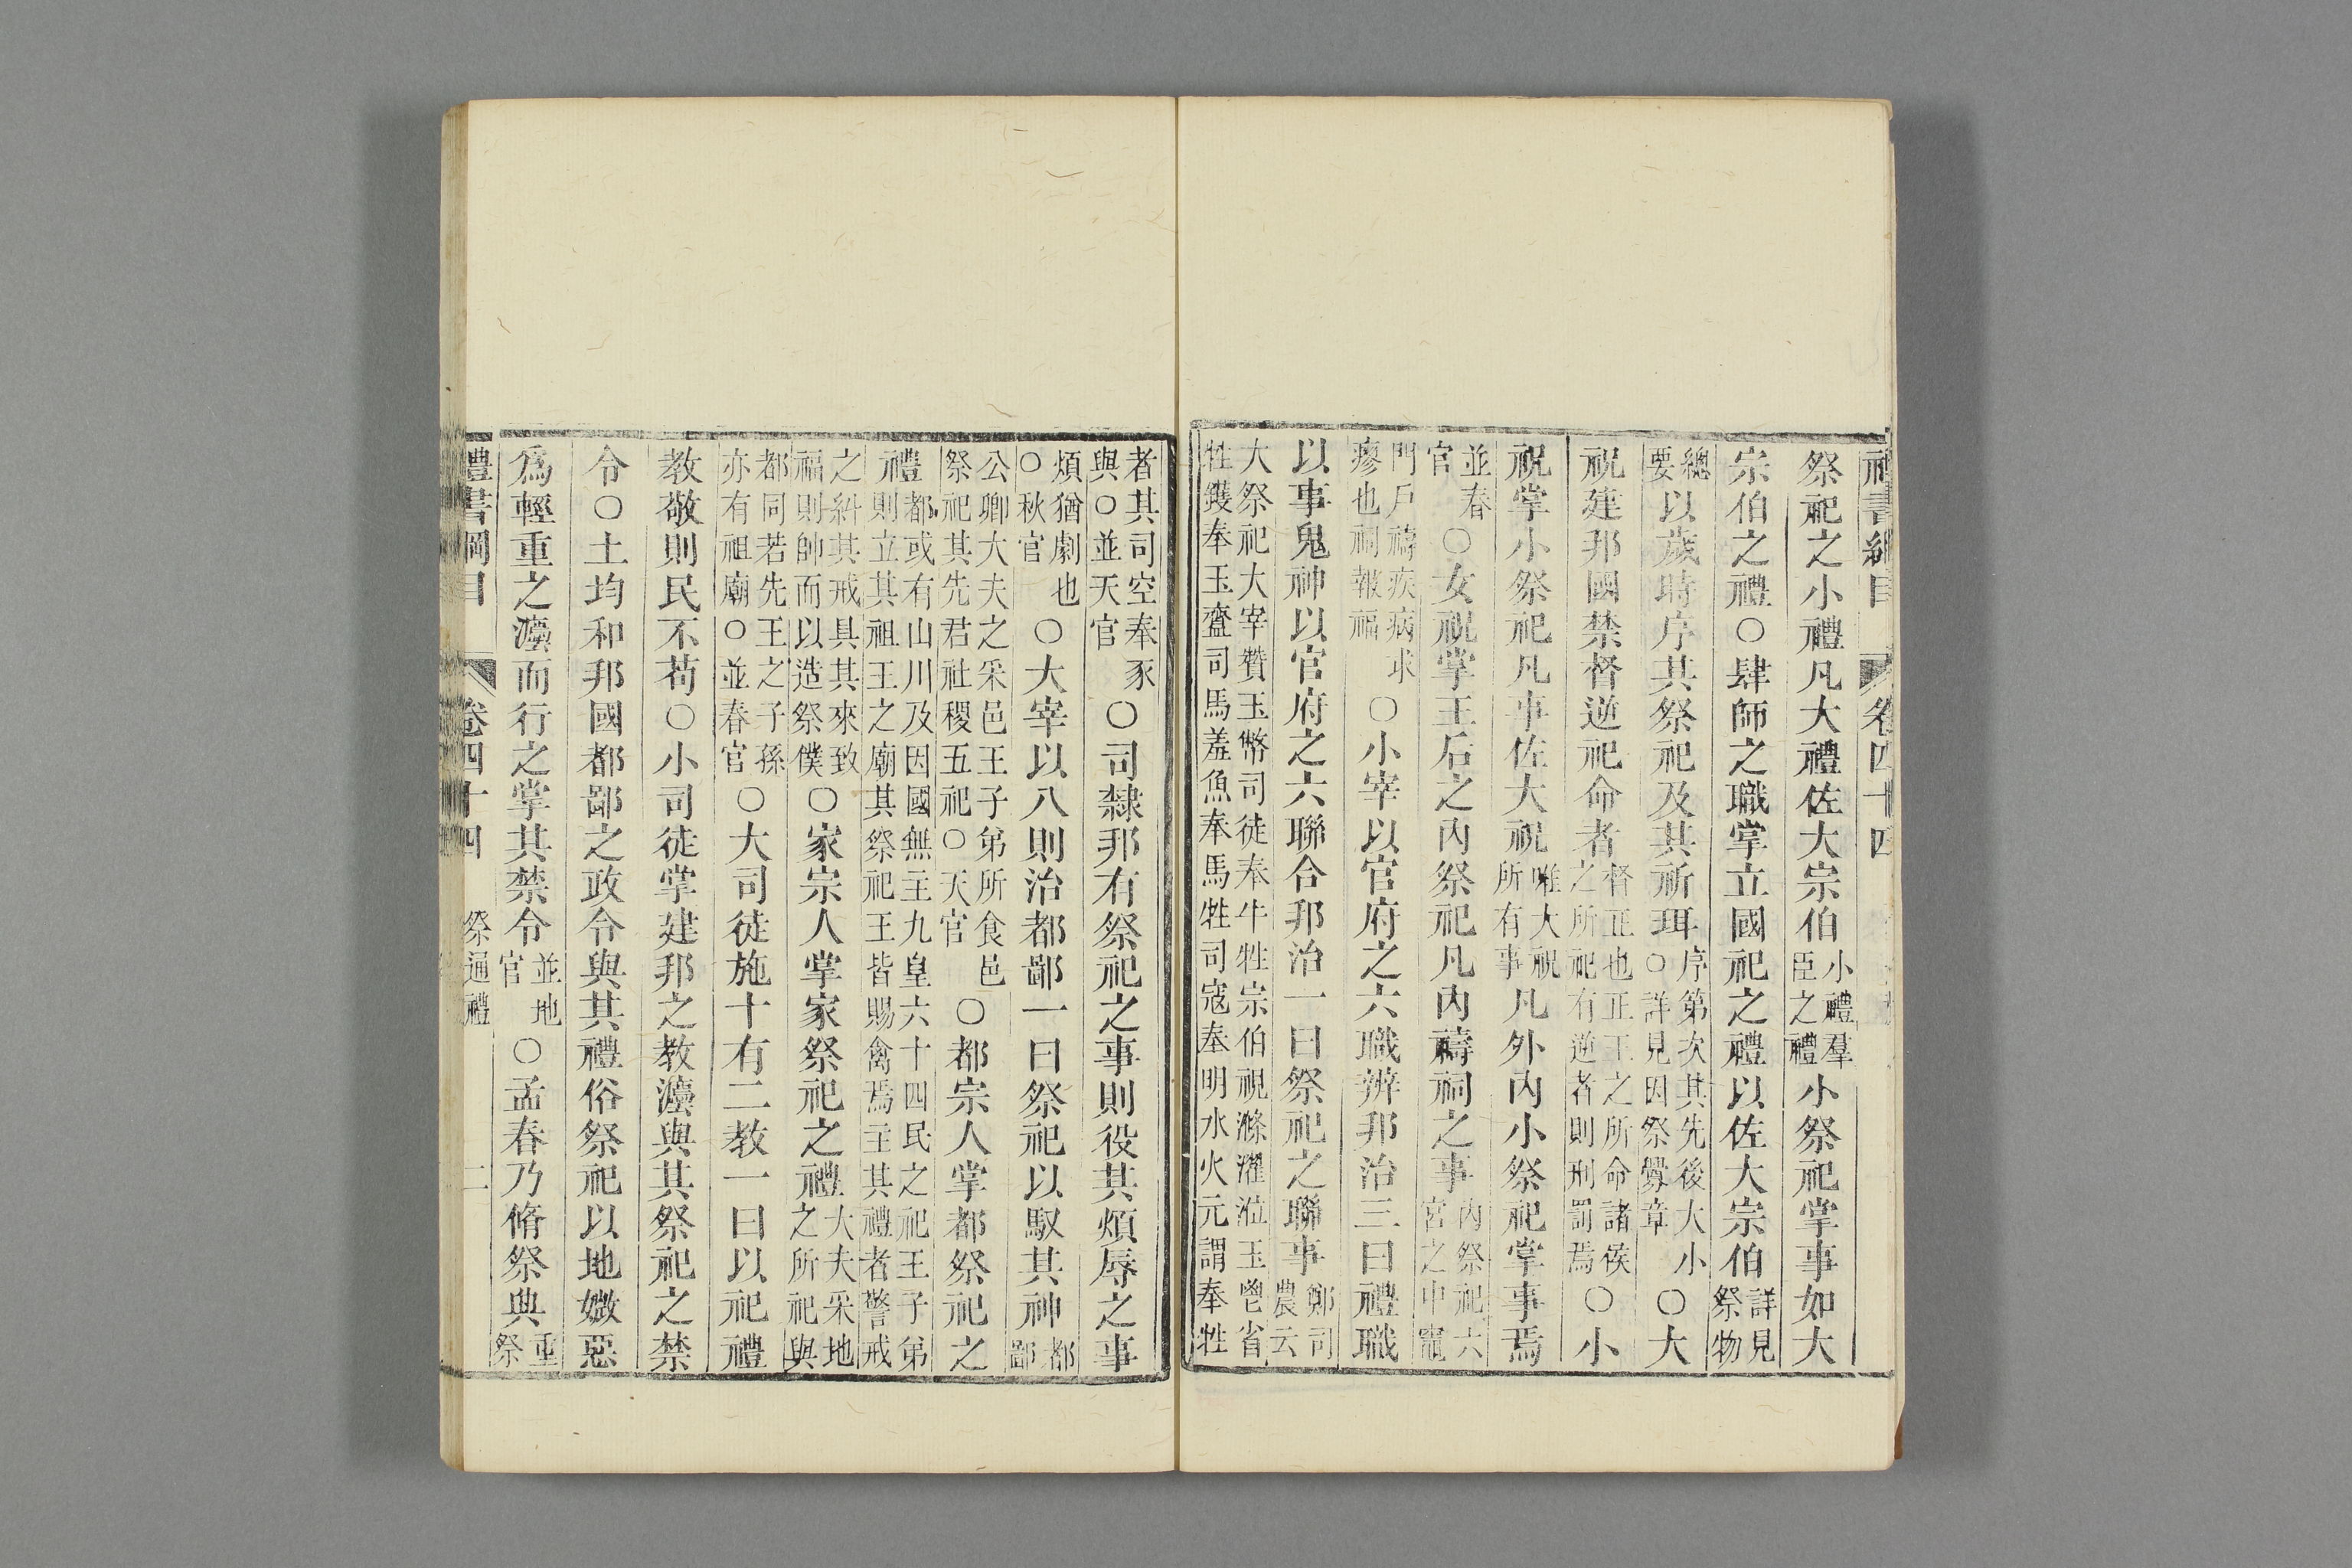 禮書綱目 卷四十四
祭祀之小禮凡大禮佐大宗伯小禮羣臣之禮小祭祀掌事如大
宗伯之禮○肆師之職掌立國祀之禮以佐大宗伯詳見祭物
總要以歲時序其祭祀及其祈珥序第次其先後大小○詳見因祭釁章○大
祝建邦國禁督逆祀命者督正也正王之所命諸侯之所祀有逆者則刑罰焉○小
祝掌小祭祀凡事佐大祝唯大祝所有事凡外內小祭祀掌事焉
並春官○女祝掌王后之內祭祀凡內禱祠之事內祭祀六宮之中竈
門戶禱疾病求瘳也祠報福○小宰以官府之六職辨邦治三曰禮職
以事鬼神以官府之六聯合邦治一曰祭祀之聯事鄭司農云
大祭祀大宰贊玉幣司徒奉牛牲宗伯視滌濯涖玉鬯省牲鑊奉玉齍司馬羞魚奉馬牲司寇奉明水火元謂奉牲
者其司空奉豕與○並天官○司隸邦有祭祀之事則役其煩辱之事
煩猶劇也○秋官○大宰以八則治都鄙一曰祭祀以馭其神都鄙
公卿大夫之采邑王子弟所食邑祭祀其先君社稷五祀○天官○都宗人掌都祭祀之
禮都或有山川及因國無主九皇六十四民之祀王子弟則立其祖王之廟其祭祀王皆賜禽焉主其禮者警戒
之糾其戒具其來致福則帥而以造祭僕○家宗人掌家祭祀之禮大夫采地之所祀與
都同若先王之子孫亦有祖廟○並春官○大司徒施十有二教一曰以祀禮
教敬則民不苟○小司徒掌建邦之教灋與其祭祀之禁
令○土均和邦國都鄙之政令與其禮俗祭祀以地媺惡
爲輕重之灋而行之掌其禁令並地官○孟春乃脩祭典重祭
禮書綱目 卷四十四 祭通禮 二